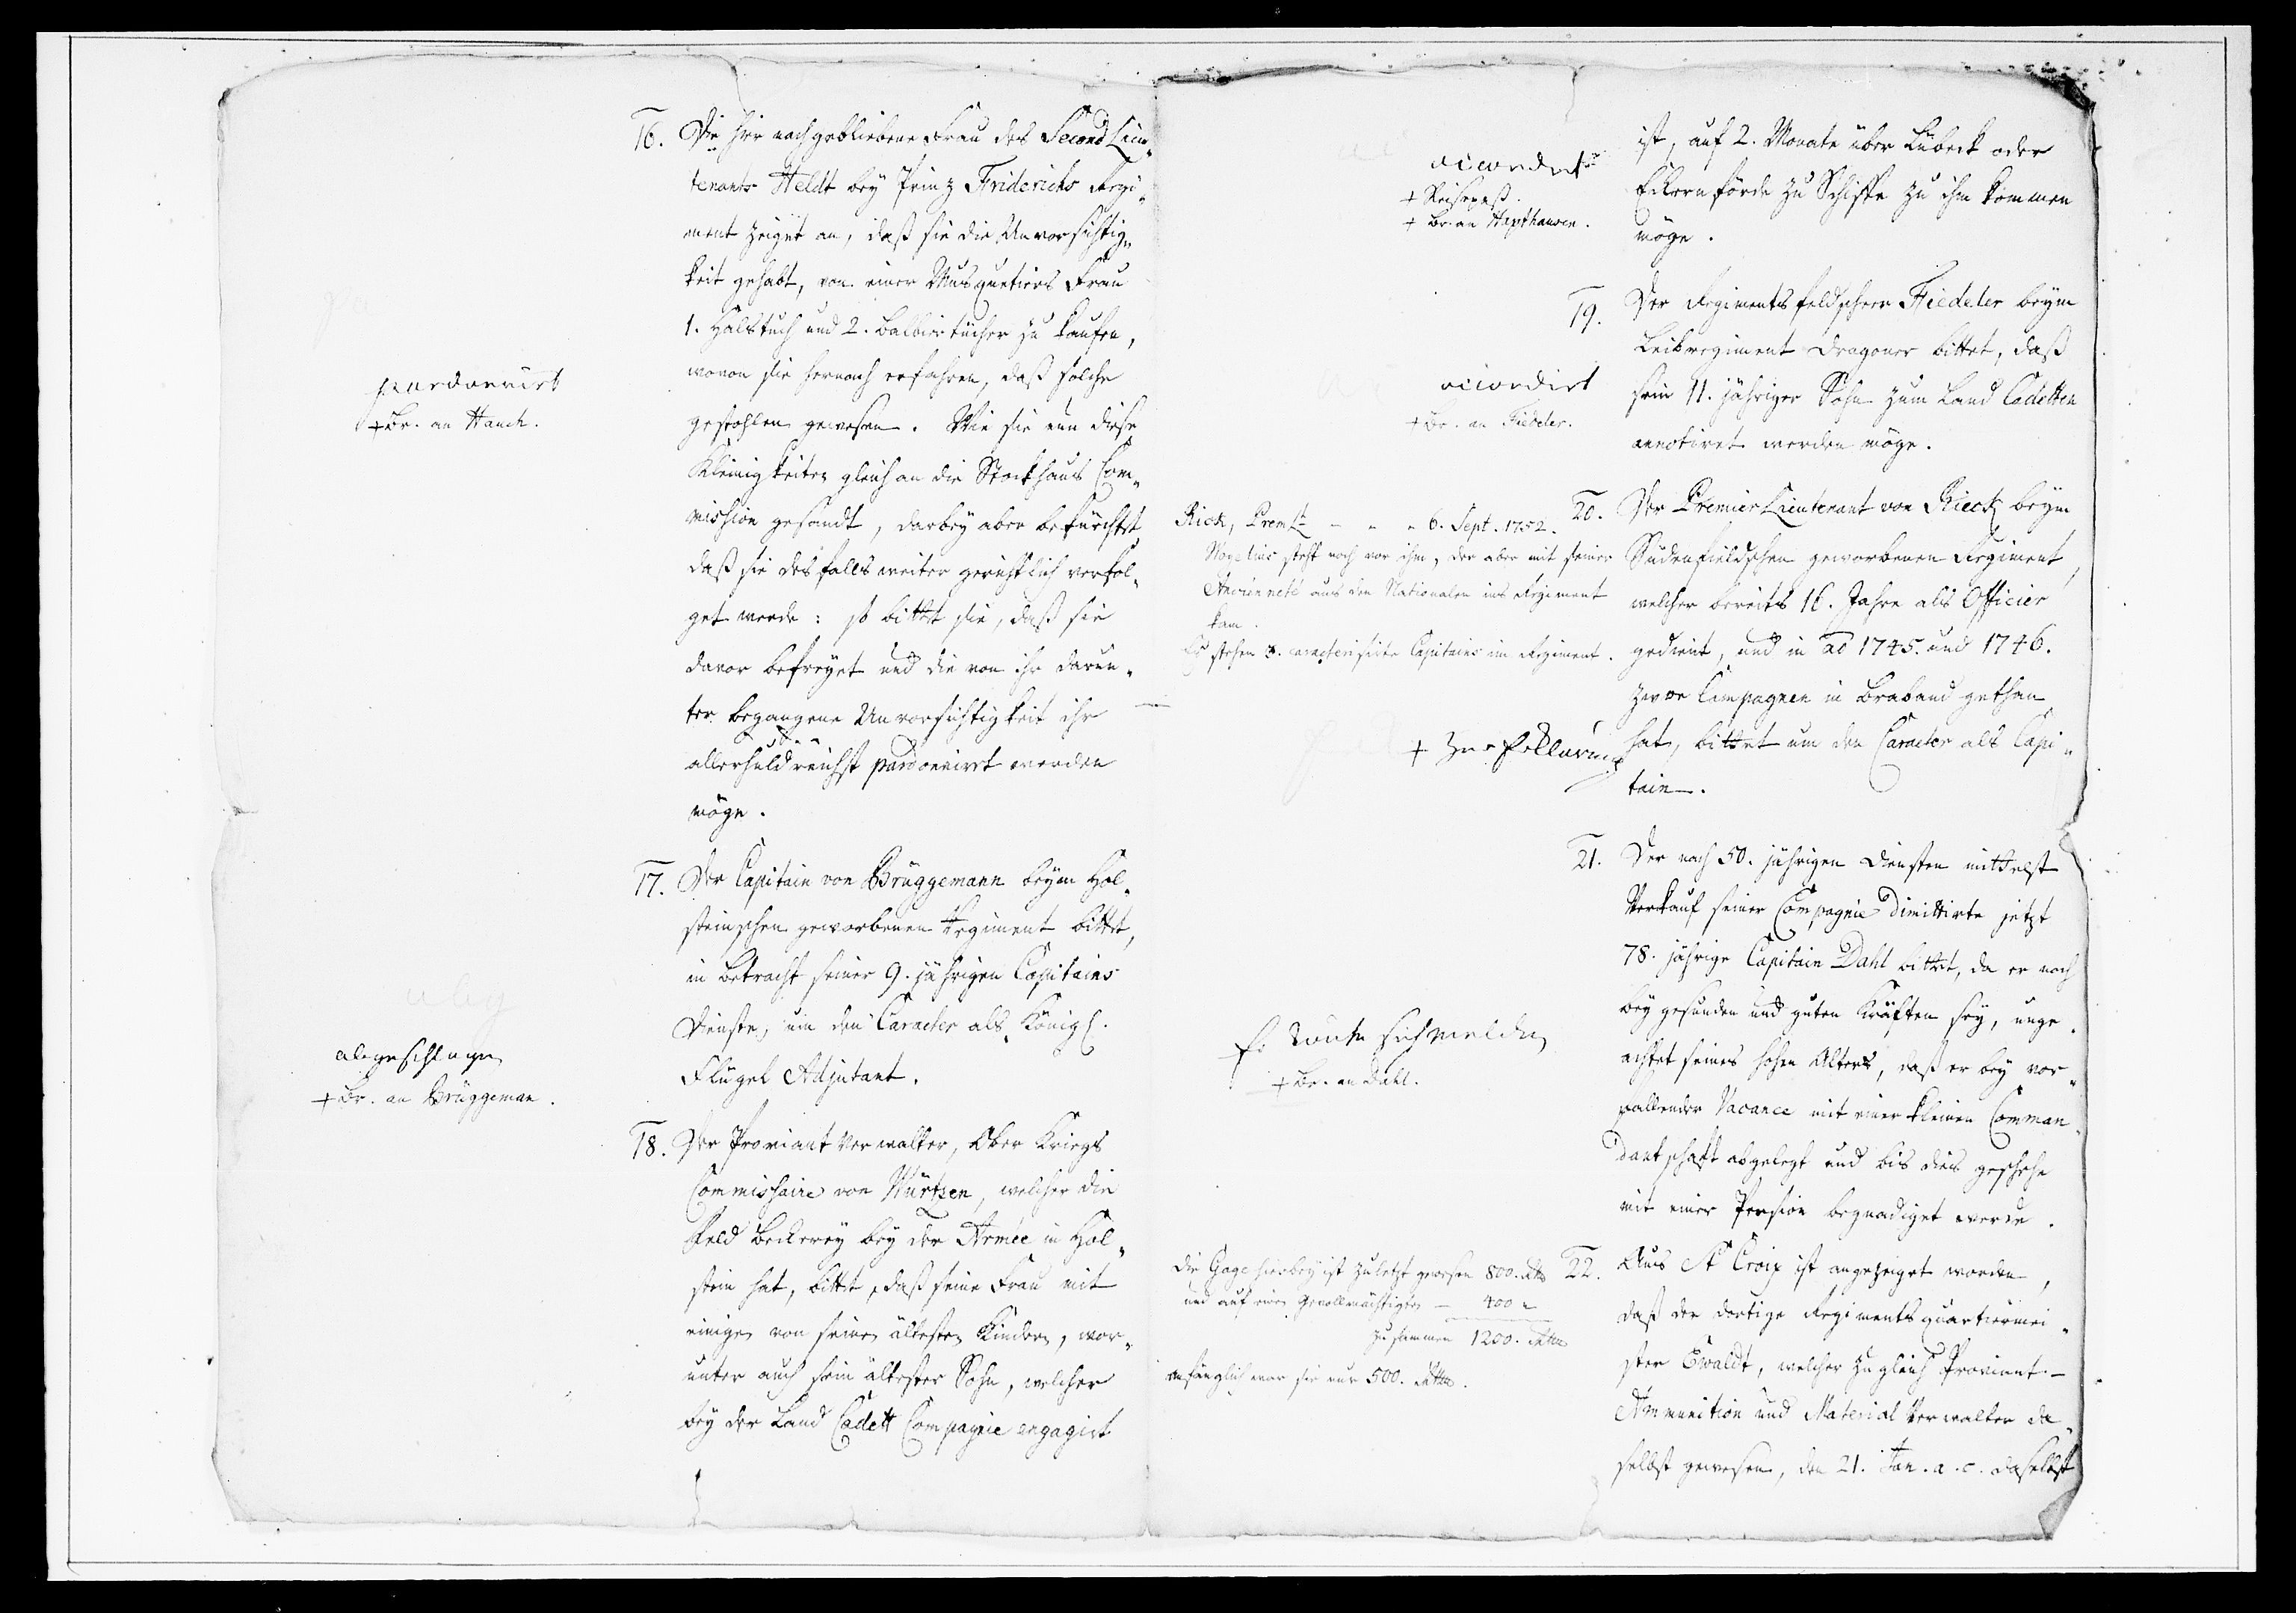 16. Die hier nachgebliebene Frau des Second Lieu„
tenants Heldt bey Prinz Friderichs Regi„
ment zeiget an, daß sie die Unvorsichtig„
keit gehabt, von einer Musquetiers Frau
1. Halstuch und 2. Balbiertücher zu kaufen,
wovon sie hernach erfahren, daß solche
pardonnirt
gestohlen gewesen. Wie sie nun diese
+ Br. an Hauch.
Kleinigkeiten gleich an die Stockhaus Com„
mission gesandt, darbey aber befürchtet,
daß sie desfalls weiter gerichtlich verfol„
get werde: so bittet sie, daß sie
davor befreyet und die von ihr darun„
ter begangene Unvorsichtigkeit ihr
allerhuldreichst pardonnirt werden
möge.
17. Der Capitain von Brüggemann beym Hol„
steinschen geworbenen Regiment bittet,
in Betracht seiner 9. jährigen Capitains
Dienste, um den Caracter als Königl.
abgeschlagen
Flügel Adjutant.
+ Br. an Brüggeman.
18. Der Proviant Verwalter, Ober Kriegs
Commissaire von Würtzen, welcher die
Feld Beckerey bey der Armée in Hol„
stein hat, bittet, daß seine Frau mit
einigen von seinen ältesten Kindern, wor„
unter auch sein ältester Sohn, welcher
bey der Land Cadett Compagnie engagirt
ist, auf 2. Monate über Lübeck oder
accordirt
Eckernförde zu Schiffe zu ihm kommen
+ Reisepaß.
möge.
+ Br. an Haxthausen.
19. Der Regimentsfeldscheer Fiedeler beym
Leibregiment Dragoner bittet, daß
accordirt
sein 11. jähriger Sohn zum Land Cadetten
+ Br. an Fiedeler.
annotiret werden möge.
20. Der Premier Lieutenant von Rieck beym
Rick, Premlt - - - 6. Sept. 1752.
Südenfieldschen geworbenen Regiment,
steht noch vor ihm, der aber mit seiner
Ancienneté aus den Nationalen ins Regiment
kam.
welcher bereits 16. Jahre als Officier
Es stehen 3. caracterisirte Capitains im Regiment.
gedient, und in ao 1745. und 1746.
zwoe Campagnen in Braband gethan
hat, bittet um den Caracter als Capi„
+ Zur Erklärung
tain.
21. Der nach 50. jährigen Diensten mittelst
Verkauf seiner Compagnie dimittirte jetzt
78. jährige Capitain Dahl bittet, da er noch
bey gesunden und guten Kräften sey, unge„
achtet seines hohen Alters, daß er bey vor„
+ Br. an Dahl.
fallender Vacance mit einer kleinen Comman„
dantschaft abgelegt und bis dies geschehe
mit einer Pension begnadiget werde.
22. Aus St Croix ist angezeiget worden,
Die Gage hierbey ist zuletzt gewesen 800. Rthlr
und auf einen Gevollmächtigten — 400 „
zusammen 1200. Rthlr
anfänglich war sie nur 500. Rthlr.
daß der dortige Regimentsquartiermei„
ster Ewaldt, welcher zugleich Proviant-
Ammunition und Material Verwalter da„
selbst gewesen, den 21. Jan. a. c. daselbst